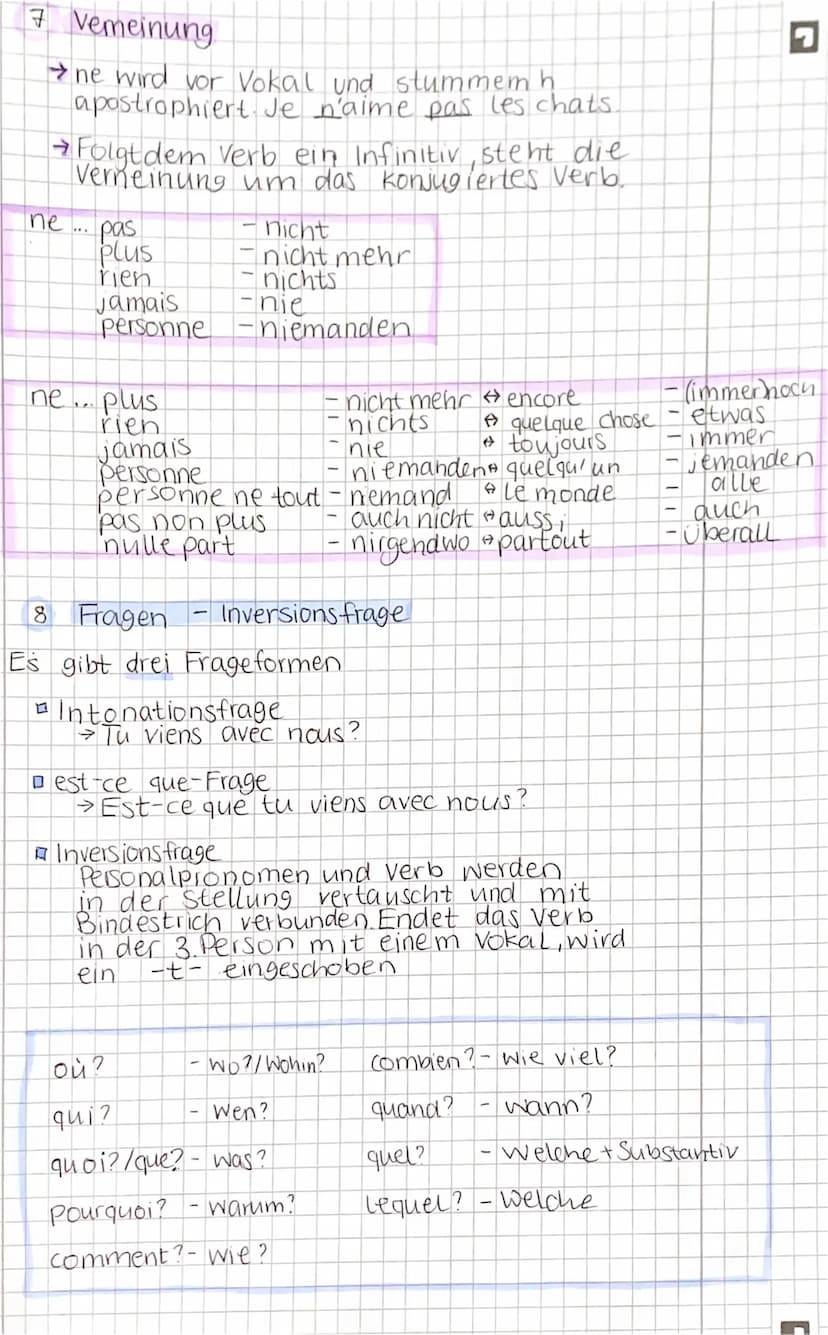 7 Verneinung
→ ne wird vor Vokal und stummem h
apostrophiert. Je n'aime pas les chats.
→ Folgt dem Verb ein Infinitiv, steht die
Verneinung um das konjugiertes Verb.
ne ... pas - nicht
plus - nicht mehr
rien - nichts
jamais - nie
personne - niemanden
ne ... plus - nicht mehr ↔ encore - (immer)noch
rien - nichts ↔ quelque chose - etwas
jamais - nie ↔ toujours - immer
personne - niemanden ↔ quelqu'un - jemanden
personne ne tout - niemand ↔ le monde - alle
pas non plus - auch nicht ↔ aussi - auch
nulle part - nirgendwo ↔ partout - überall
8 Fragen - Inversionsfrage
Es gibt drei Frageformen
Intonationsfrage
→ Tu viens avec nous?
est-ce que-Frage
→ Est-ce que tu viens avec nous?
Inversionsfrage
Personalpronomen und Verb werden
in der Stellung vertauscht und mit
Bindestrich verbunden. Endet das Verb
in der 3. Person mit einem Vokal, wird
ein -t- eingeschoben
où? - wo?/Wohin? combien? - wie viel?
qui? - wen? quand? - wann?
quoi?/que? - was? quel? - welche + Substantiv
pourquoi? - warum? lequel? - welche
comment? - wie?